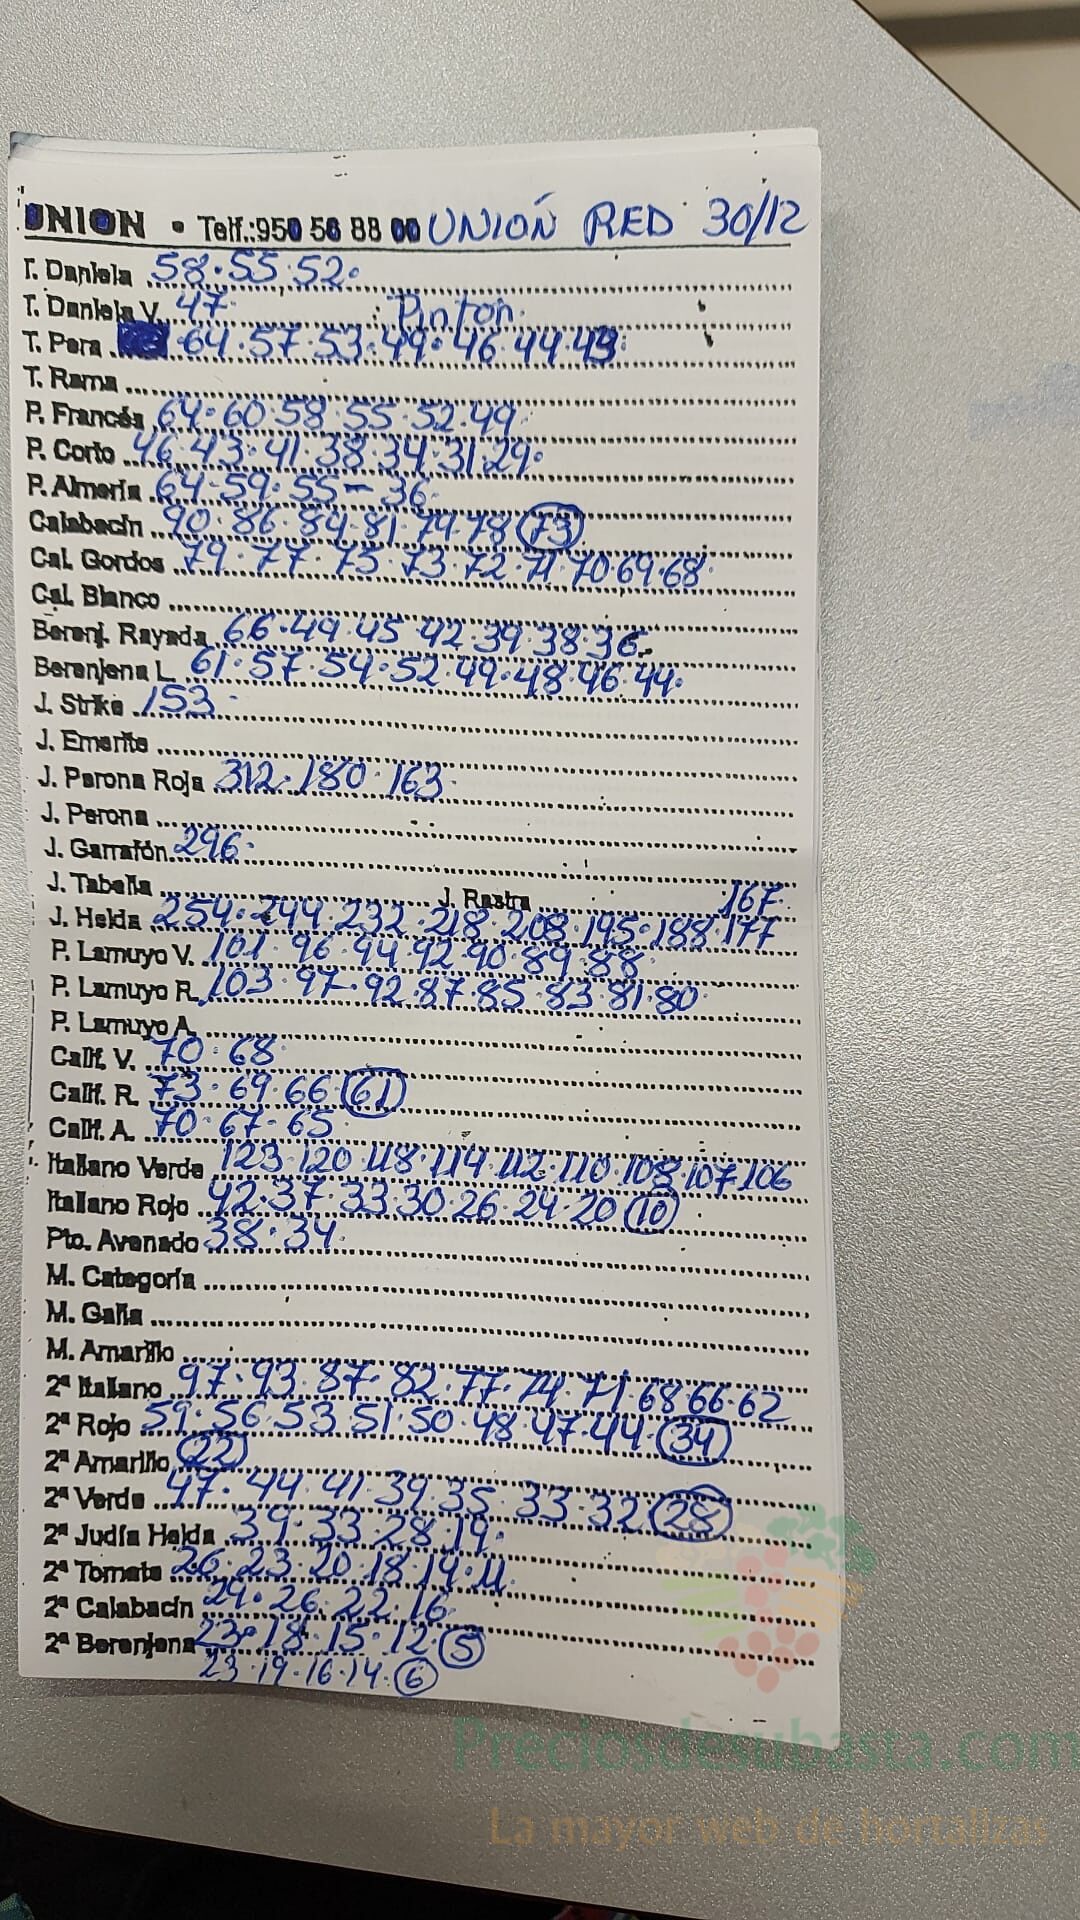 UNION • Telf.:950 56 88 00 UNIÓN RED 30/12
T. Daniela 58·55·52·
T. Daniela V. 47· Pinton·
T. Pera ·64·57·53·49·46·44·43·
T. Rama
P. Francés 64·60·58·55·52·49·
P. Corto 46·43·41·38·34·31·29·
P. Almería 64·59·55-36·
Calabacín 90·86·84·81·79·78 (73)
Cal. Gordos 79·77·75·73·72·71·70·69·68·
Cal. Blanco
Berenj. Rayada 66·49·45·42·39·38·36·
Berenjena L 61·57·54·52·49·48·46·44·
J. Strike 153·
J. Emerite
J. Perona Roja 312·180·163·
J. Perona
J. Garrafón 296·
J. Tabella J. Rastra 167·
J. Helda 254·244·232·218·208·195·188·177
P. Lamuyo V. 101·96·94·92·90·89·88·
P. Lamuyo R. 103·97·92·87·85·83·81·80·
P. Lamuyo A.
Calif. V. 70·68·
Calif. R. 73·69·66 (61)
Calif. A. 70·67·65·
Italiano Verde 123·120·118·114·112·110·108·107·106
Italiano Rojo 42·37·33·30·26·24·20 (10)
Pto. Avenado 38·34·
M. Categoría
M. Galia
M. Amarillo
2ª Italiano 97·93·87·82·77·74·71·68·66·62
2ª Rojo 59·56·53·51·50·48·47·44· (34)
2ª Amarillo (22)
2ª Verde 47·44·41·39·35·33·32 (28)
2ª Judía Helda 39·33·28·19·
2ª Tomate 26·23·20·18·14·11·
2ª Calabacín 29·26·22·16·
2ª Berenjena 23·18·15·12· (5)
23·19·16·14· (6)
Preciosdesubasta.com
La mayor web de hortalizas